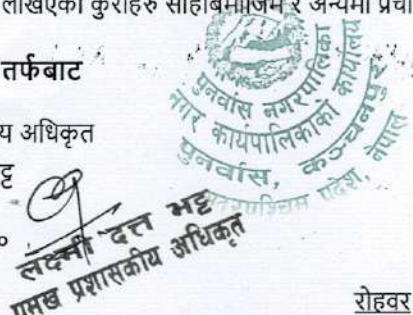 लेखिएका कुराहरु सोहीबमोजिम र अन्यमा प्रचा
तर्फबाट
पुनर्वास नगरपालिका
नगर कार्यपालिकाको कार्यालय
पुनर्वास, कञ्चनपुर
सुदूरपश्चिम प्रदेश, नेपाल
य अधिकृत
ट्ट
लक्ष्मी दत्त भट्ट
प्रमुख प्रशासकीय अधिकृत
रोहवर